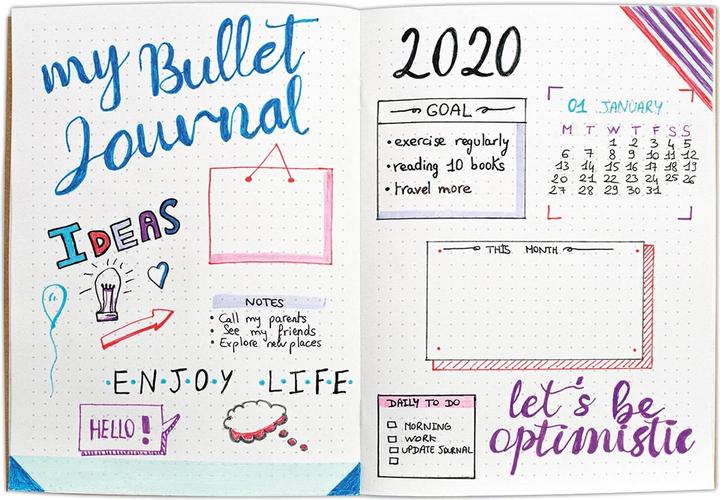 my Bullet
Journal
IDEAS
NOTES
• Call my parents
• See my friends
• Explore new places
ENJOY LIFE
HELLO!
2020
GOAL
• exercise regularly
• reading 10 books
• travel more
01 JANUARY
M T W T F S S
1 2 3 4 5
6 7 8 9 10 11 12
13 14 15 16 17 18 19
20 21 22 23 24 25 26
27 28 29 30 31
THIS MONTH
DAILY TO DO
MORNING
WORK
UPDATE JOURNAL
let's be
optimistic